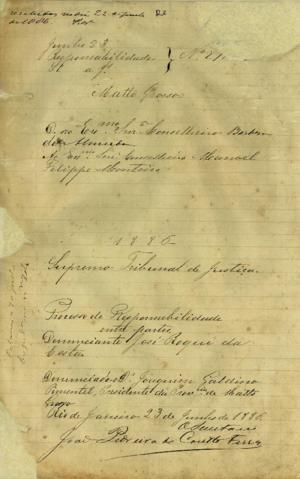 Junho 23
Responsabilidade
Matto Grosso
D. ao Exmo Snr Conselheiro Barbosa
de Almeida
Ao Exmo Snr Conselheiro Manoel
Filippe Monteiro
1886
Supremo Tribunal de Justiça.
Processo de Responsabilidade
entre partes
Denunciante José Roque da
Costa
Denunciado Dr Joaquim Galdino
Pimentel, Presidente da Provcia de Matto
Grosso
Rio de Janeiro 23 de Junho de 1886
O Secretario
João Pedreira do Coutto Ferraz